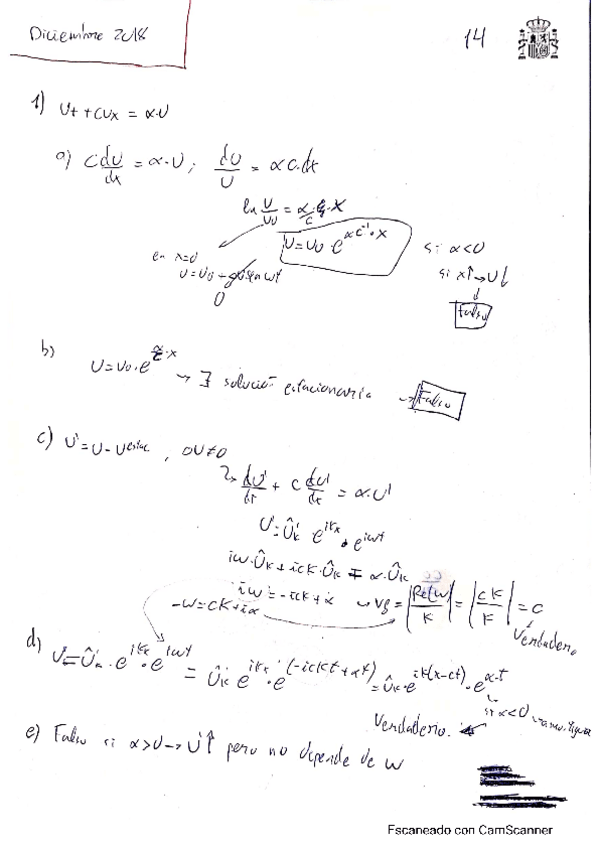 Diciembre 2018
14
1) Ut + cux = α·U
a) C dU/dx = α·U ; dU/U = α c·dx
ln U/U0 = α/c · x
U = U0 · e^(α c^-1 · x)
en x=0
si α<0
si x↑→U↓
Falso
0
b) U = U0·e^(α/c · x) → ∃ solución estacionaria → Falso
c) U' = U - Uestac , ∂U≠0
dU'/dt + c dU'/dx = α·U'
U' = Û'k · e^(ikx) · e^(iωt)
iω·Ûk + ick·Ûk = α·Ûk
iω = -ick + α → vf = |Re(ω)/k| = |ck/k| = c
-ω = ck + iα
Verdadero
d) U' = Û'k · e^(ikx) · e^(iωt) = Ûk · e^(ikx) · e^(-ickt + αt) = Ûk · e^(ik(x-ct)) · e^(α·t)
si α<0
Verdadero.
e) Falso si α>0 → U'↑ pero no depende de ω
Escaneado con CamScanner